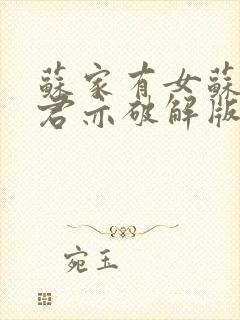 蘇家有女蘇
君亦破解版
宛玉